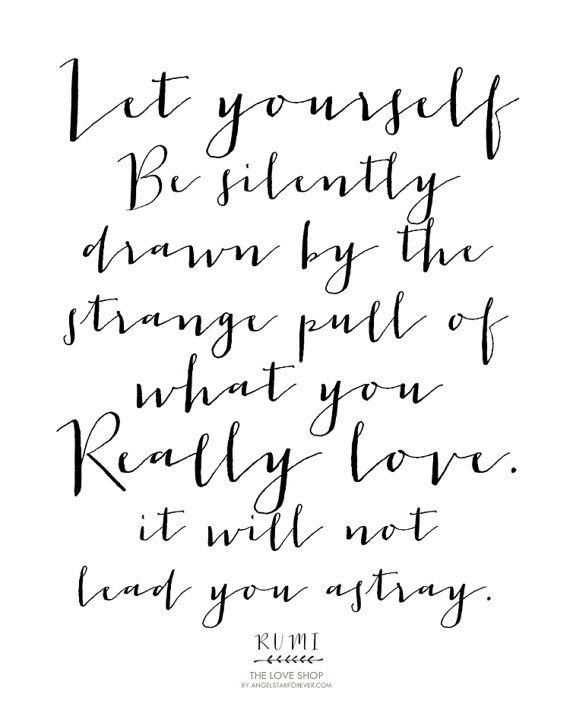 Let yourself
Be silently
drawn by the
strange pull of
what you
Really love.
it will not
lead you astray.
RUMI
THE LOVE SHOP
BY ANGELSTARFOREVER.COM